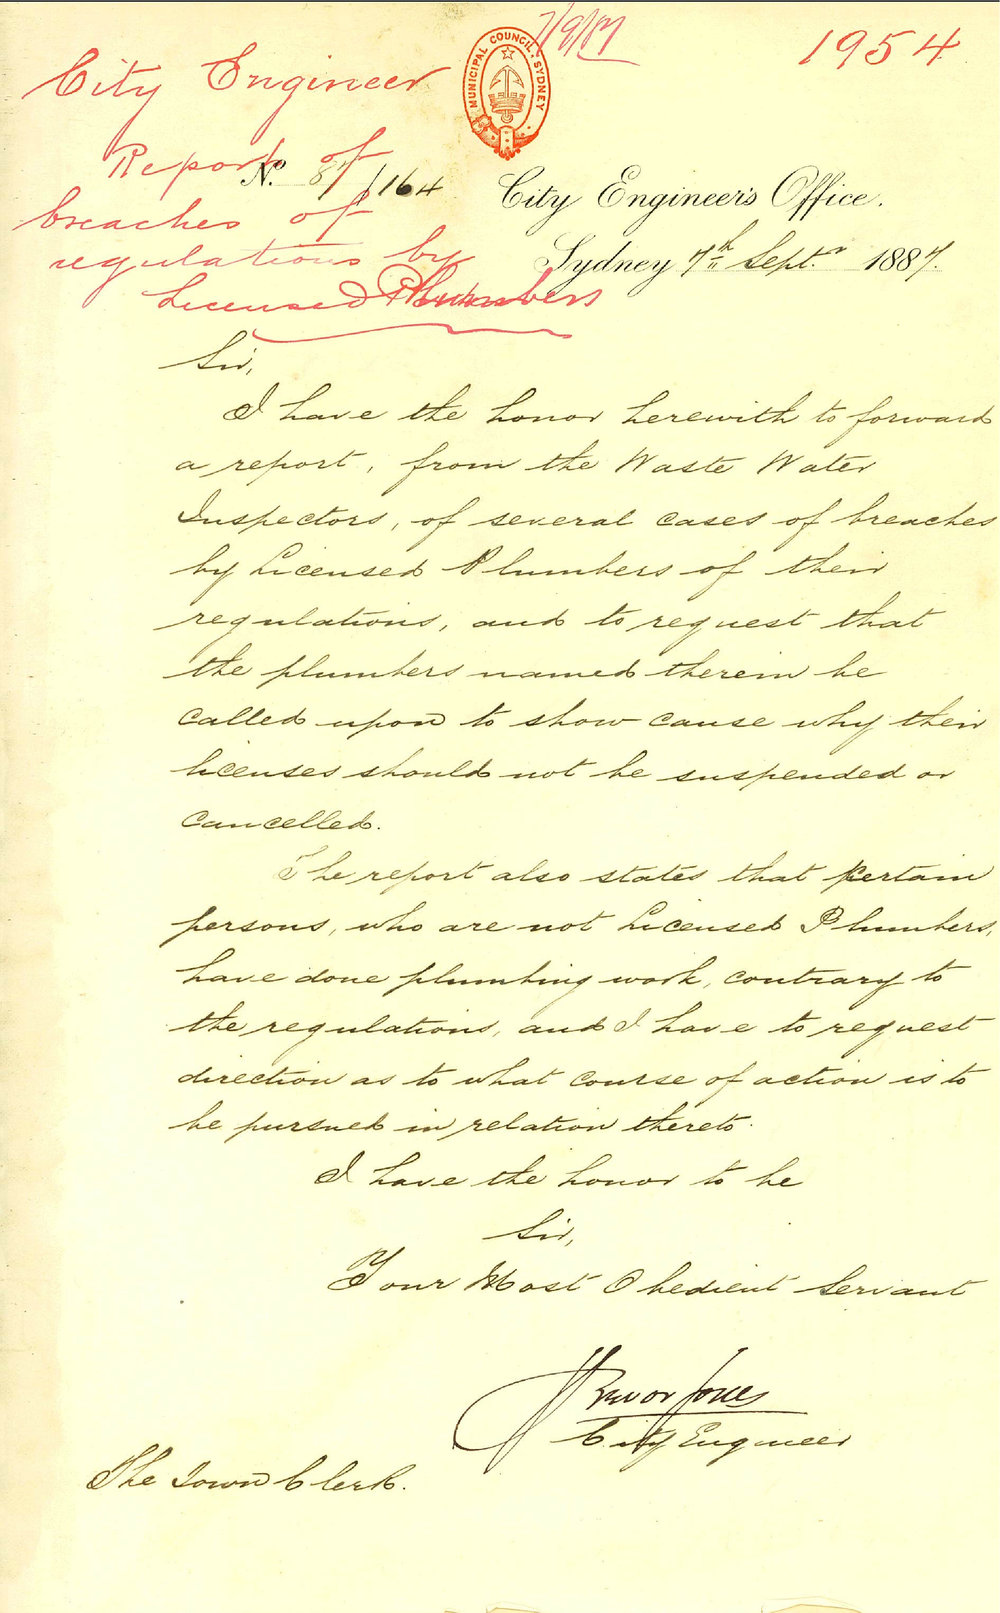 7/9/87
1954
City Engineer
Report of
breaches of
regulations by
Licensed Plumbers
MUNICIPAL COUNCIL, SYDNEY
No. 87/164
City Engineer's Office.
Sydney 7th Septr. 1887.
Sir,
I have the honor herewith to forward
a report, from the Waste Water
Inspectors, of several cases of breaches
by Licensed Plumbers of their
regulations, and to request that
the plumbers named therein be
called upon to show cause why their
licenses should not be suspended or
cancelled.
The report also states that certain
persons, who are not Licensed Plumbers,
have done plumbing work, contrary to
the regulations, and I have to request
direction as to what course of action is to
be pursued in relation thereto.
I have the honor to be
Sir,
Your Most Obedient Servant
Trevor Jones
City Engineer
The Town Clerk.